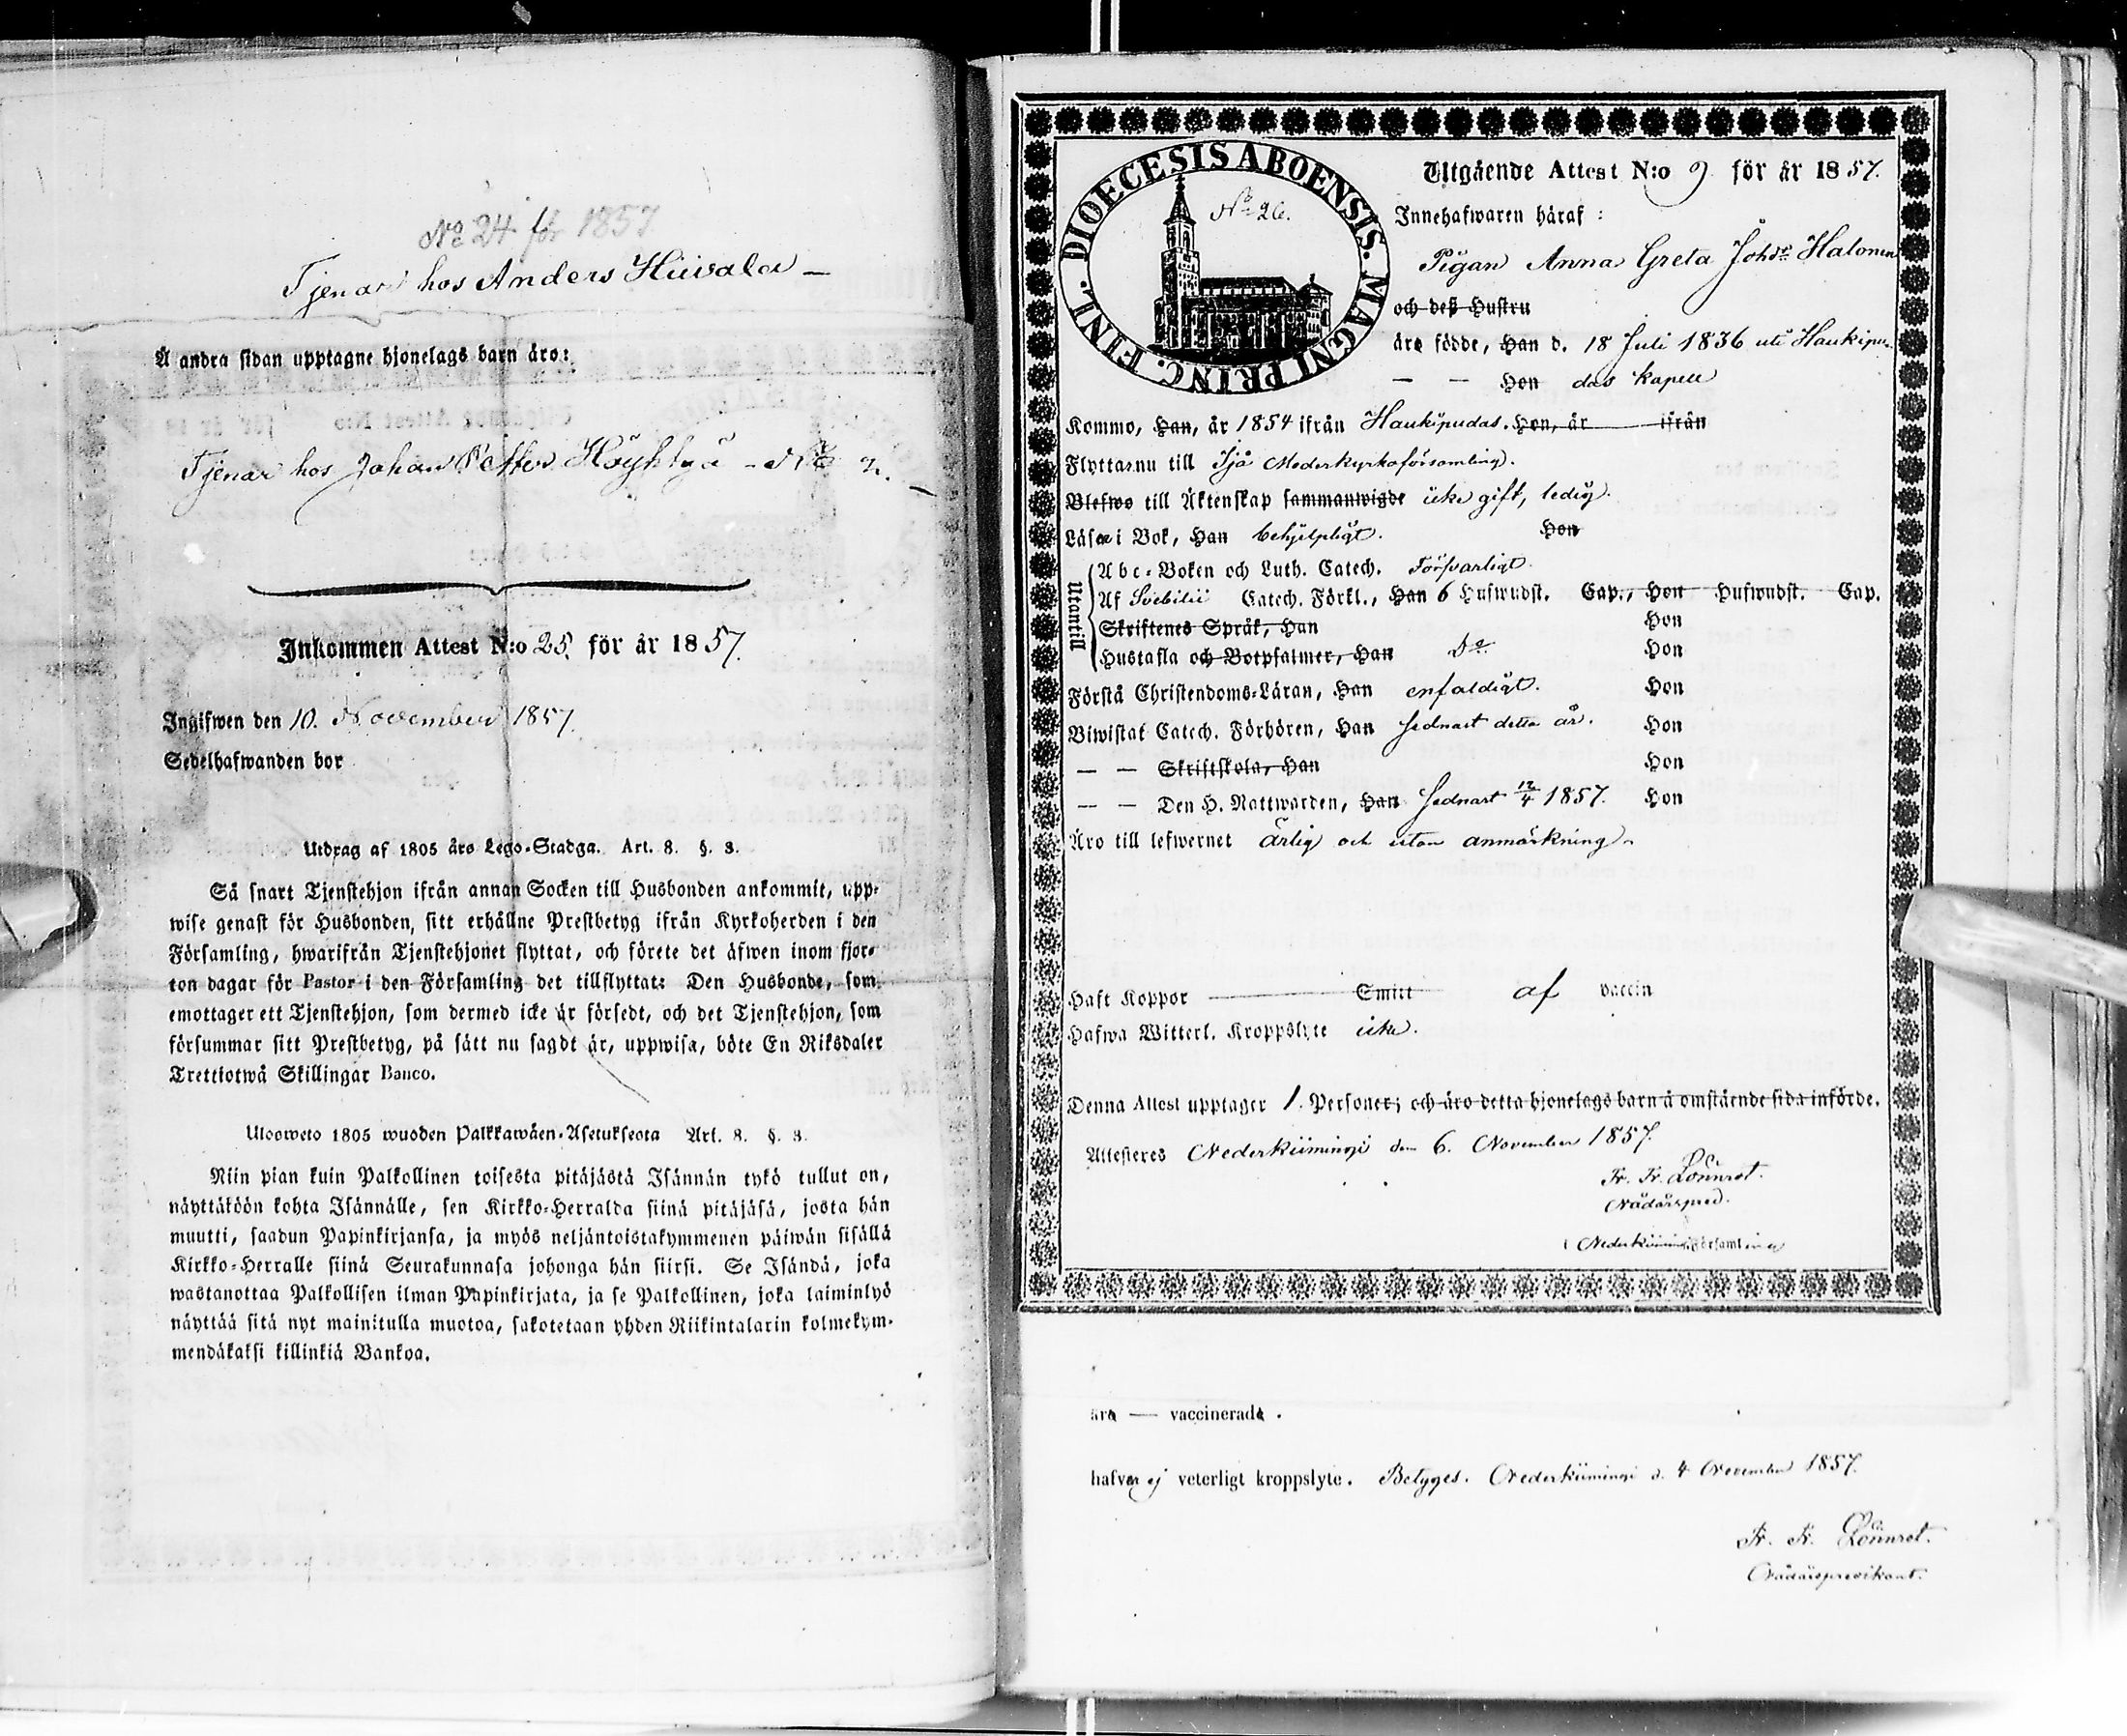 No 24 för 1857
Tjenar hos Anders Hiivala —
Å andra sidan upptagne hjonelags barn äro:
Tjenar hos Johan Petter Höyhtyä - No 2. —
Inkommen Attest N:o 25. för år 1857.
Ingifwen den 10. November 1857.
Sedelhafwanden bor
Utdrag af 1805 års Lego-Stadga. Art. 8. §. 3.
Så snart Tjenstehjon ifrån annan Socken till Husbonden ankommit, upp-
wise genast för Husbonden, sitt erhållne Prestbetyg ifrån Kyrkoherden i den
Församling, hwarifrån Tjenstehjonet flyttat, och förete det äfwen inom fjor-
ton dagar för Pastor i den Församling det tillflyttat: Den Husbonde, som
emottager ett Tjenstehjon, som dermed icke är försedt, och det Tjenstehjon, som
försummar sitt Prestbetyg, på sätt nu sagdt är, uppwisa, böte En Riksdaler
Trettiotwå Skillingar Banco.
Ulosweto 1805 wuoden Palkkawäen-Asetuksesta Art. 8. §. 3.
Niin pian kuin Palkollinen toisesta pitäjästä Isännän tykö tullut on,
näyttäköön kohta Isännälle, sen Kirkko-Herralda siinä pitäjäsä, josta hän
muutti, saadun Papinkirjansa, ja myös neljäntoistakymmenen päiwän sisällä
Kirkko-Herralle siinä Seurakunnasa johonga hän siirsi. Se Isändä, joka
wastanottaa Palkollisen ilman Papinkirjata, ja se Palkollinen, joka laiminlyö
näyttää sitä nyt mainitulla muotoa, sakotetaan yhden Riikintalarin kolmekym-
mendäkaksi killinkiä Bankoa.
DIOECESIS ABOENSIS. MAGNI PRINC. FINL.
No 26.
Utgående Attest N:o 9 för år 1857.
Innehafwaren häraf:
Pigan Anna Greta Johsdr Halonen
och deß Hustru
äro födde, Han d. 18 Juli 1836 uti Haukipu-
— — Hon das kapell
Kommo, Han, år 1854 ifrån Haukipudas. Hon, år ifrån
Flyttar nu till Ijo Moderkyrkoförsamling.
Blefwo till Äktenskap sammanwigde icke gift, ledig.
Läser i Bok, Han behjelpligt. Hon
Utantill
Abc-Boken och Luth. Catech. Försvarligt
Af Svebilii Catech. Förkl., Han 6 Hufwudst. Cap., Hon Hufwudst. Cap.
Skriftenes Språk, Han Hon
Hustafla och Botpsalmer, Han Do Hon
Förstå Christendoms-Läran, Han enfaldigt. Hon
Biwistat Catech. Förhören, Han sednast detta år. Hon
— — Skriftskola, Han Hon
— — Den H. Nattwarden, Han sednast 12/4 1857. Hon
Äro till lefwernet ärlig och utan anmärkning.
Haft Koppor Smitt af vaccin
Hafwa Witterl. Kroppslyte icke.
Denna Attest upptager 1. Personer; och äro detta hjonelags barn å omstående sida införde.
Attesteres Nederkiimingi den 6. November 1857.
Fr. Fr. Lönnrot.
Nådårspred.
i Nederkiimingi församling
äro — vaccinerade.
hafver ej veterligt kroppslyte. Betyges. Nederkiimingi d. 4 November 1857.
Fr. Fr. Lönnrot.
Nådårspredikant.